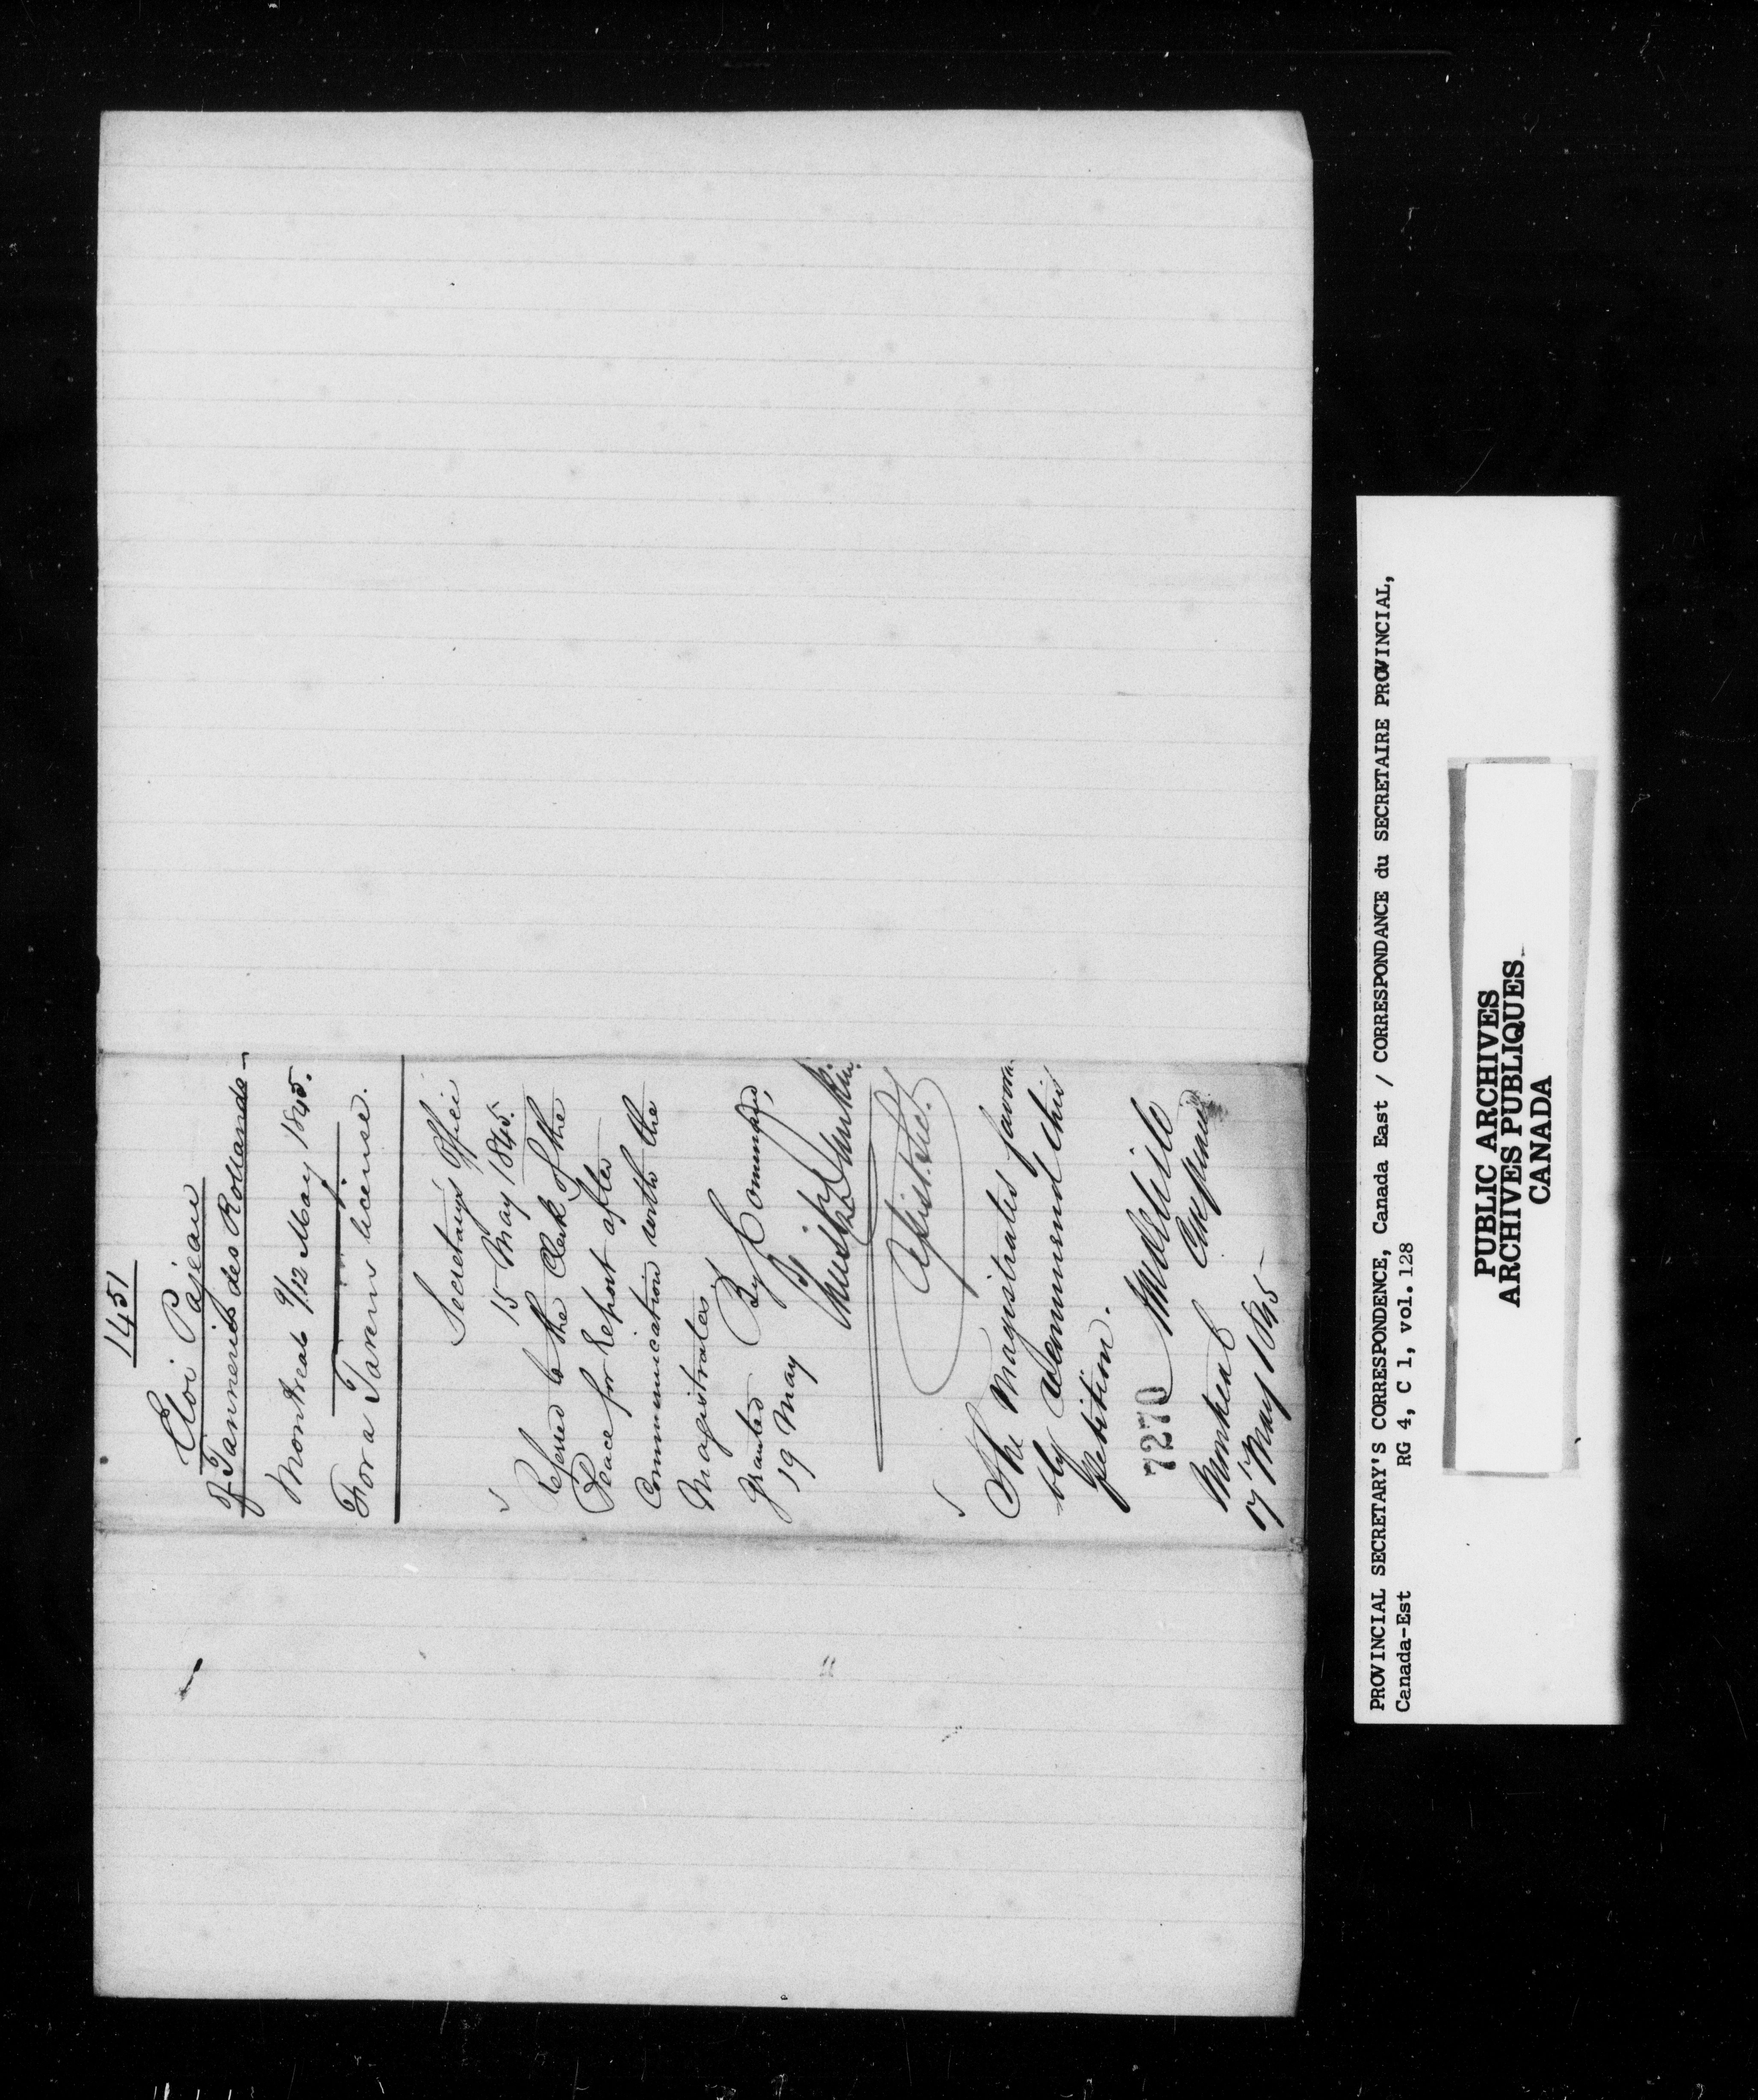 1451
Eloi Pajeau
of Tanneries des Rollands -
Montreal 9/12 May 1845.
For a Tavern license.
Secretary's Office
15 May 1845.
Referred to the Clerk of the
Peace for Report after
Communication with the
Magistrates.
By Command,
Granted
19 May
Asist. Sec.
The Magistrates favora
bly recommend this
petition.
7270
Montreal
17 May 1845
PROVINCIAL SECRETARY'S CORRESPONDENCE, Canada East / CORRESPONDANCE du SECRETAIRE PROVINCIAL,
Canada-Est RG 4, C 1, vol. 128
PUBLIC ARCHIVES
ARCHIVES PUBLIQUES
CANADA